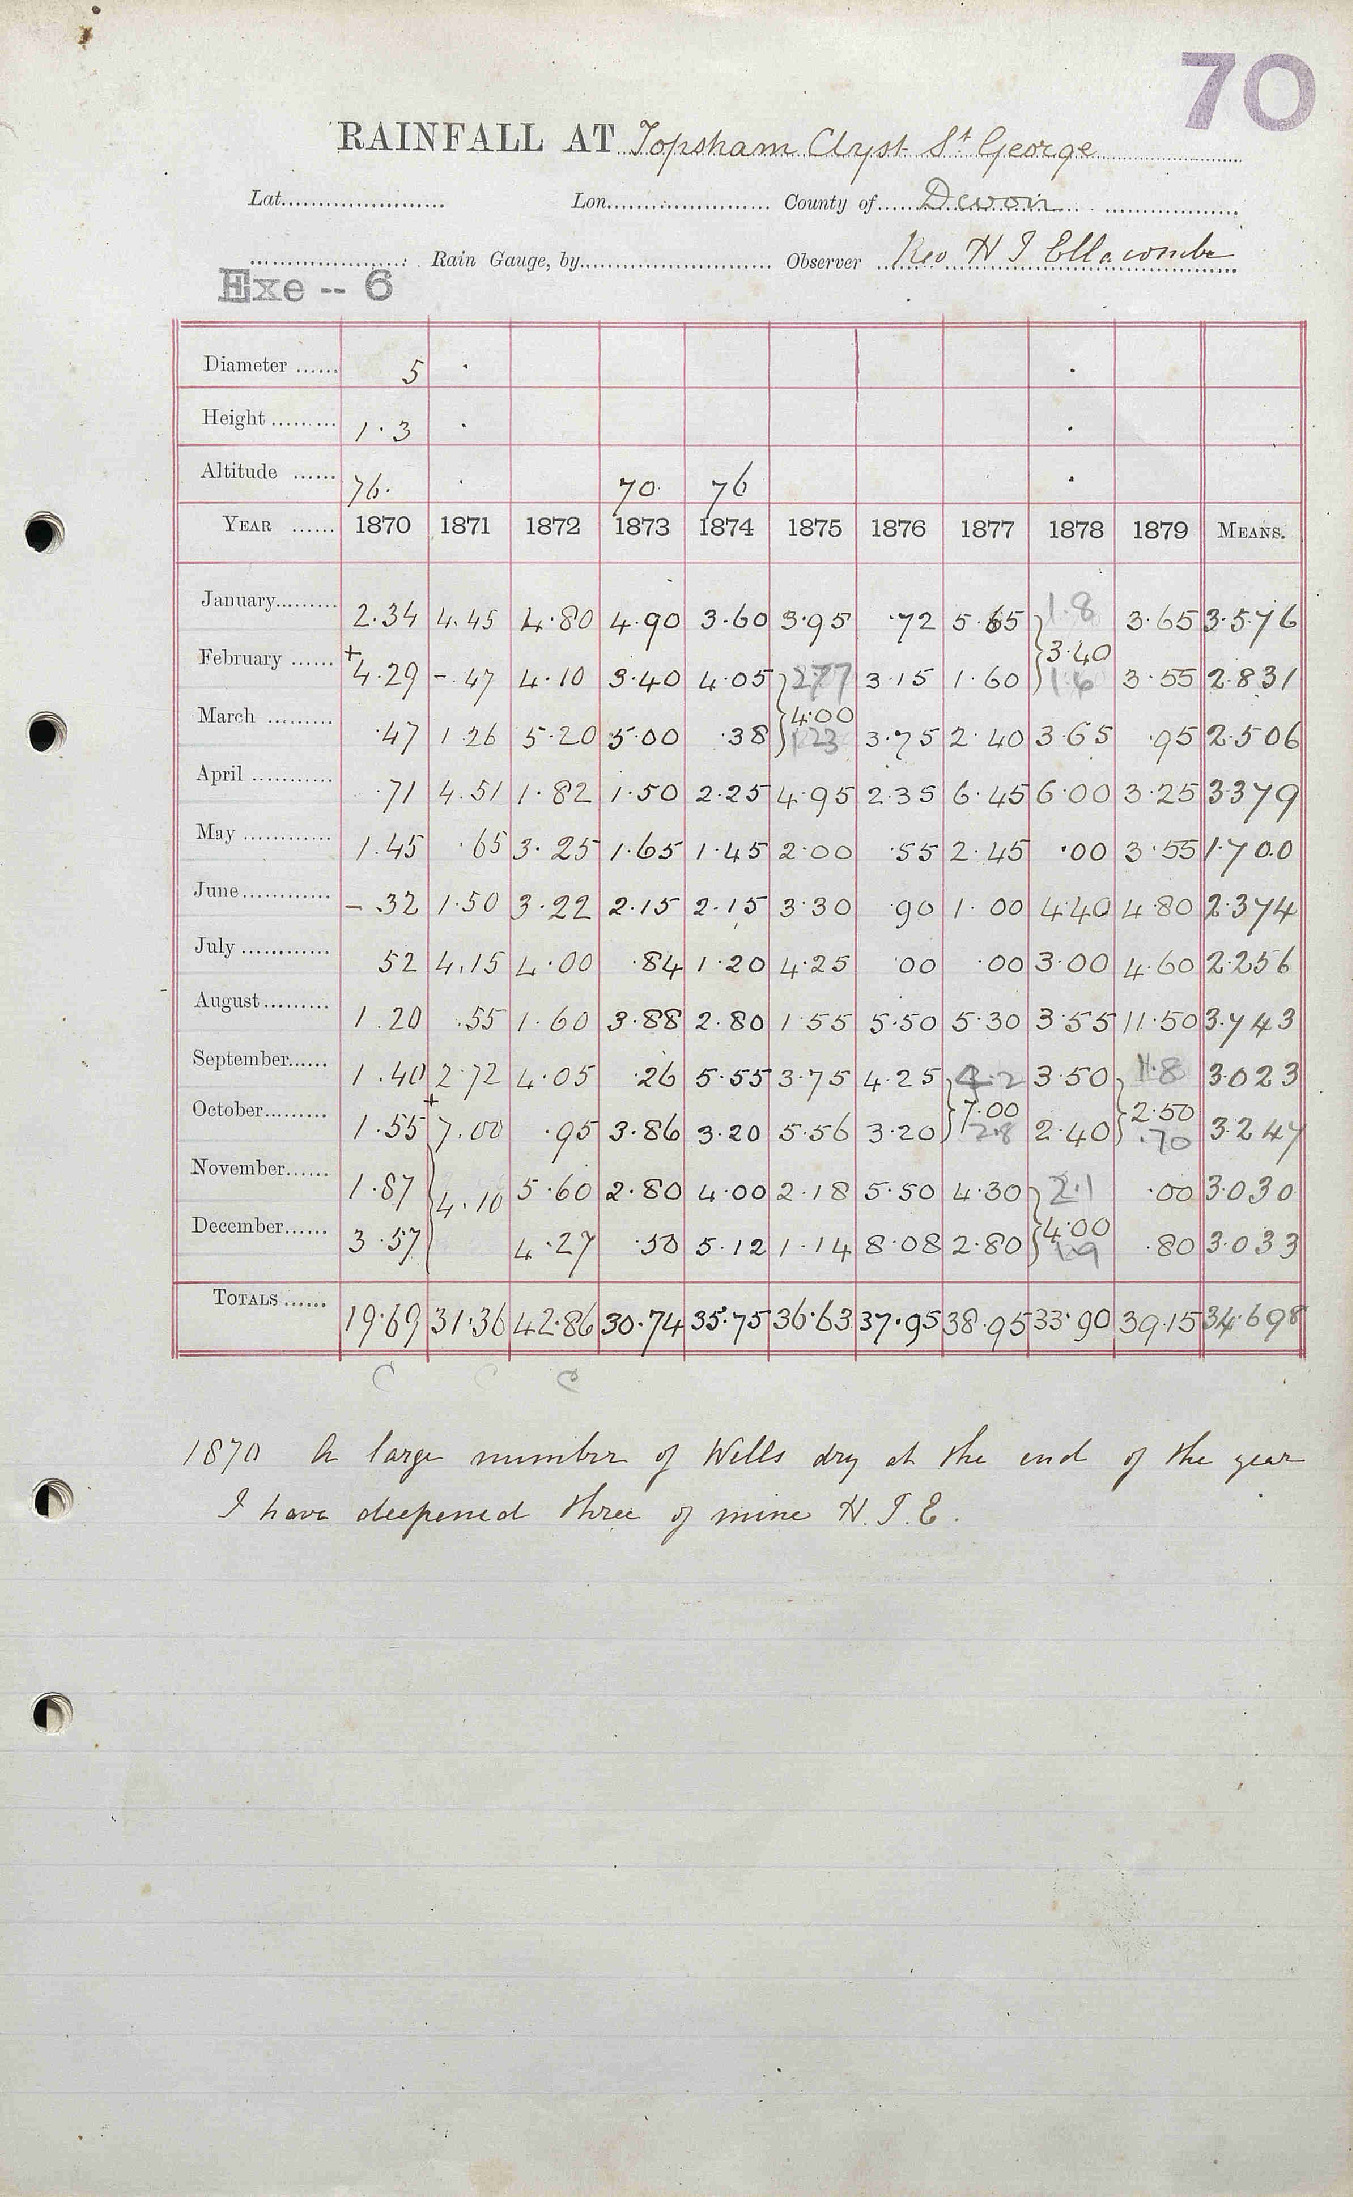 70
RAINFALL AT Topsham Clyst St George
Lat. Lon. County of Devon
Rain Gauge, by Observer Rev H T Ellacombe
Exe -- 6
Diameter 5
Height 1.3
Altitude 76. 70. 76
YEAR 1870 1871 1872 1873 1874 1875 1876 1877 1878 1879 MEANS.
January 2.34 4.45 4.80 4.90 3.60 3.95 .72 5.65 1.8 3.65 3.576
3.40
February +4.29 -.47 4.10 3.40 4.05 2.77 3.15 1.60 1.6 3.55 2.831
4.00
March .47 1.26 5.20 5.00 .38 1.23 3.75 2.40 3.65 .95 2.506
April .71 4.51 1.82 1.50 2.25 4.95 2.35 6.45 6.00 3.25 3.379
May 1.45 .65 3.25 1.65 1.45 2.00 .55 2.45 .00 3.55 1.700
June -.32 1.50 3.22 2.15 2.15 3.30 .90 1.00 4.40 4.80 2.374
July 52 4.15 4.00 .84 1.20 4.25 .00 .00 3.00 4.60 2.256
August 1.20 .55 1.60 3.88 2.80 1.55 5.50 5.30 3.55 11.50 3.743
September 1.40 2.72 4.05 .26 5.55 3.75 4.25 4.2 3.50 1.8 3.023
7.00 2.50
October 1.55 +7.00 .95 3.86 3.20 5.56 3.20 2.8 2.40 .70 3.247
November 1.87 4.10 5.60 2.80 4.00 2.18 5.50 4.30 2.1 .00 3.030
4.00
December 3.57 4.27 .50 5.12 1.14 8.08 2.80 1.9 .80 3.033
TOTALS 19.69 31.36 42.86 30.74 35.75 36.63 37.95 38.95 33.90 39.15 34.698
C C C
1870 A large number of Wells dry at the end of the year
I have deepened three of mine H.T.E.